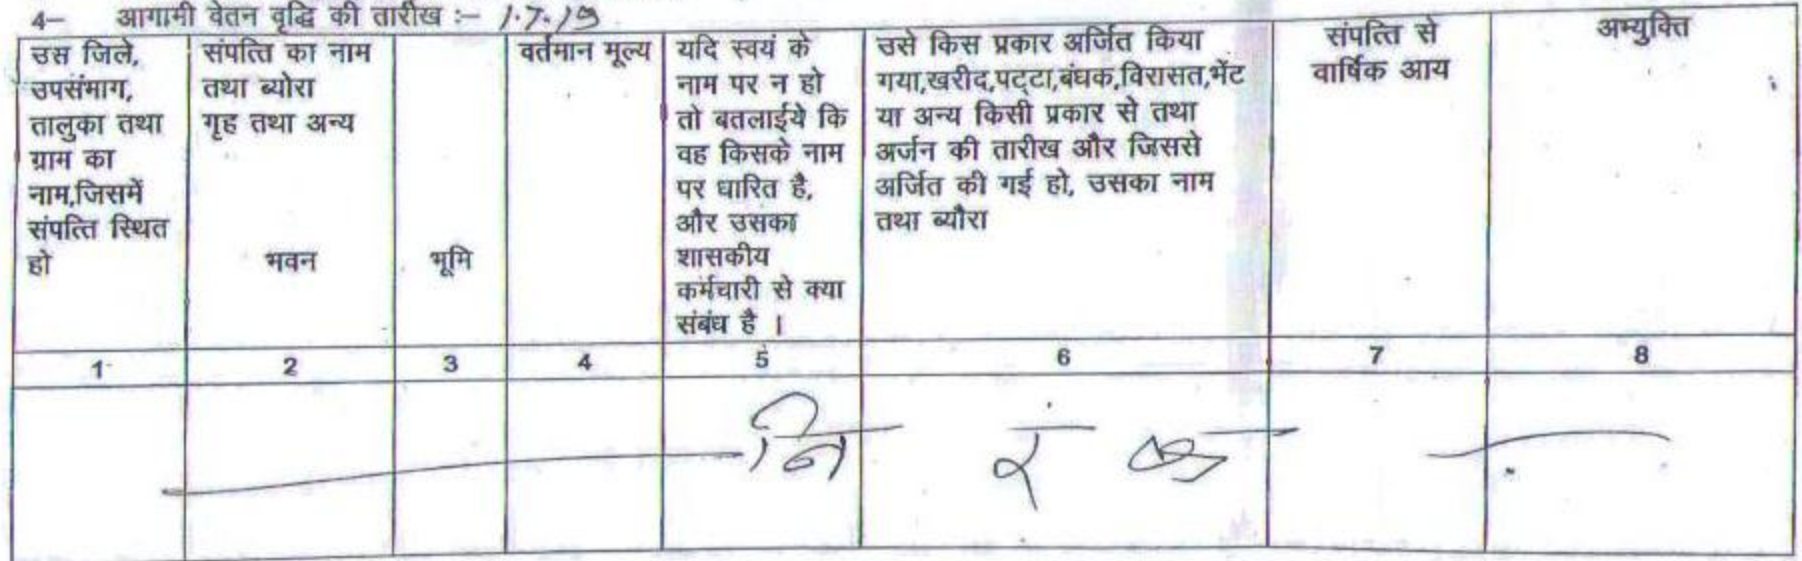 4– आगामी वेतन वृद्धि की तारीख :– 1.7.19
उस जिले,
उपसंभाग,
तालुका तथा
ग्राम का
नाम,जिसमें
संपत्ति स्थित
हो
संपत्ति का नाम
तथा ब्योरा
गृह तथा अन्य
भवन
भूमि
वर्तमान मूल्य
यदि स्वयं के
नाम पर न हो
तो बतलाईये कि
वह किसके नाम
पर धारित है,
और उसका
शासकीय
कर्मचारी से क्या
संबंध है ।
उसे किस प्रकार अर्जित किया
गया,खरीद,पट्टा,बंधक,विरासत,भेंट
या अन्य किसी प्रकार से तथा
अर्जन की तारीख और जिससे
अर्जित की गई हो, उसका नाम
तथा ब्यौरा
संपत्ति से
वार्षिक आय
अभ्युक्ति
1 2 3 4 5 6 7 8
नि रं क